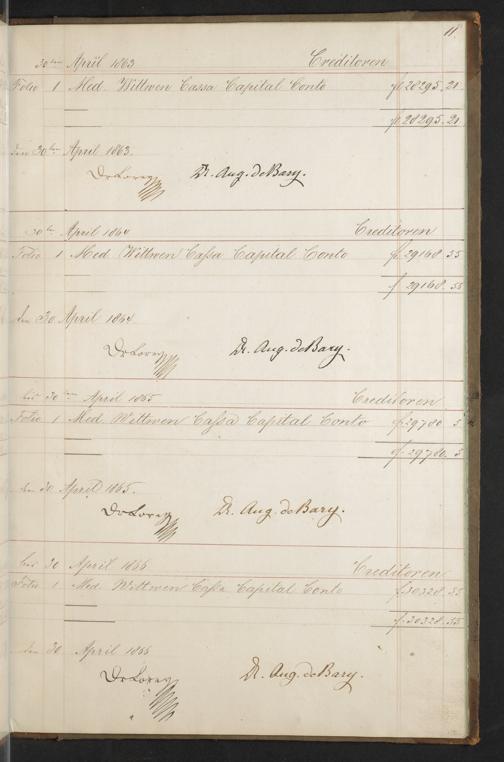 11
30ten April 1863 Creditoren
Folio 1 Med. Wittwen Cassa Capital Conto f. 28295. 21
f. 28295. 21
den 30ten April 1863.
Dr Lorey Dr. Aug. de Bary.
30ten April 1864 Creditoren
Folio 1 Med. Wittwen Caſsa Capital Conto f. 29168. 55
f. 29168. 55
den 30 April 1864
Dr Lorey Dr. Aug. de Bary.
bis 30ten April 1865 Creditoren
Folio 1 Med. Wittwen Caſsa Capital Conto f. 29780. 5
f. 29780. 5
den 30 April 1865.
Dr Lorey Dr. Aug. de Bary.
bis 30 April 1866 Creditoren
Folio 1 Med. Wittwen Caſsa Capital Conto f. 30328. 35
f. 30328. 35
den 30 April 1866
Dr Lorey Dr. Aug. de Bary.